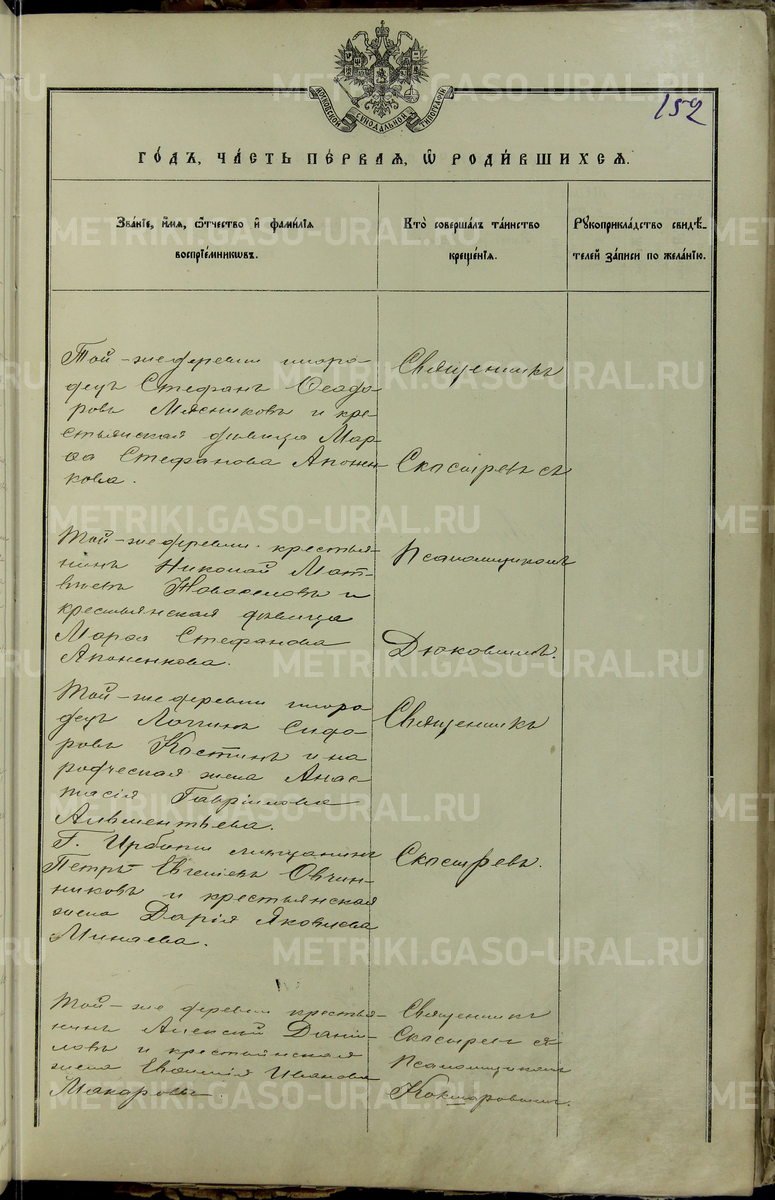 МОСКОВСКОЙ СѴНОДАЛЬНОЙ ТИПОГРАФІИ
152
ГО́ДЪ, ЧА́СТЬ ПЕ́РВАЯ, Ѡ҆ РОДИ́ВШИХСЯ.
Зва́нїе, и҆́мѧ, ѻ҆́тчество и҆ фами́лїѧ
воспрїе́мникѡвъ.
Кто̀ соверша́лъ та́инство
креще́нїѧ.
Рꙋкоприкла́дство свидѣ́-
телей за́писи по жела́нїю.
Той-же деревни иноро-
децъ Стефанъ Ѳеодо-
ровъ Мясниковъ и кре-
стьянская дѣвица Мар-
ѳа Стефанова Апонен-
кова.
Священникъ
Скосыревъ съ
Той-же деревни крестья-
нинъ Николай Мат-
вѣевъ Новоселовъ и
крестьянская дѣвица
Марѳа Стефанова
Апоненкова.
Псаломщикомъ
Дюковымъ.
Той-же деревни иноро-
децъ Логгинъ Сидо-
ровъ Костинъ и на-
родческая жена Анас-
тасія Гавріилова
Аивментьева.
Священникъ
Г. Ирбити мѣщанинъ
Петръ Евгеніевъ Овчин-
никовъ и крестьянская
жена Дарія Яковлева
Минаева.
Скосыревъ.
Той-же деревни крестья-
нинъ Алексѣй Дани-
ловъ и крестьянская
жена Евѳимія Иванова
Макарова.
Священникъ
Скосыревъ съ
Псаломщикомъ
Кокшаровымъ.
METRIKI.GASO-URAL.RU